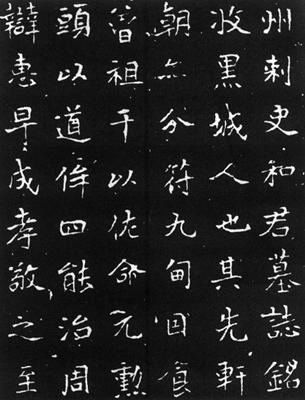 州刺史和君墓誌銘
牧黑城人也其先軒
朝亦分符九甸因食
曾祖干以佐命元勳
頭以道侔四能治周
辯惠早成孝敬之至